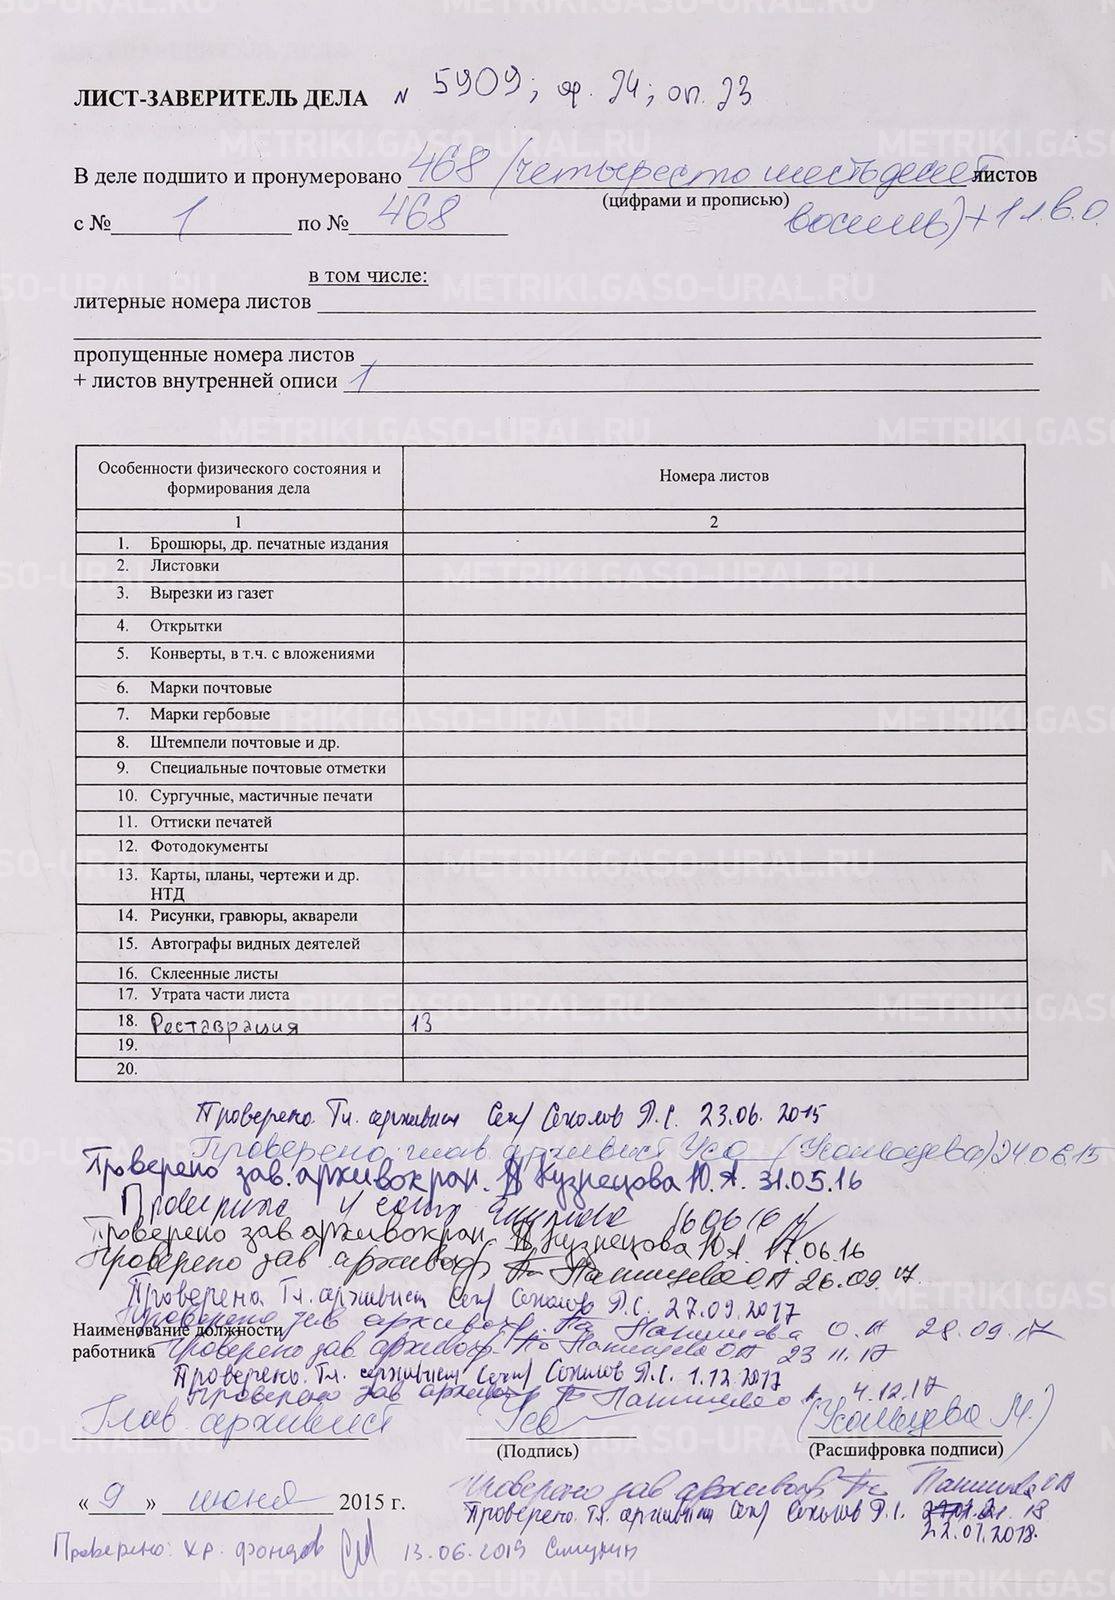 ЛИСТ-ЗАВЕРИТЕЛЬ ДЕЛА N 5909; ф. 24; оп. 23
В деле подшито и пронумеровано 468 (четыресто шестьдесят листов
(цифрами и прописью)
восемь) + 1 л.в.о.
с № 1 по № 468
в том числе:
литерные номера листов
пропущенные номера листов
+ листов внутренней описи 1
Особенности физического состояния и формирования дела
Номера листов
1 2
1. Брошюры, др. печатные издания
2. Листовки
3. Вырезки из газет
4. Открытки
5. Конверты, в т.ч. с вложениями
6. Марки почтовые
7. Марки гербовые
8. Штемпели почтовые и др.
9. Специальные почтовые отметки
10. Сургучные, мастичные печати
11. Оттиски печатей
12. Фотодокументы
13. Карты, планы, чертежи и др.
НТД
14. Рисунки, гравюры, акварели
15. Автографы видных деятелей
16. Склеенные листы
17. Утрата части листа
18. Реставрация 13
19.
20.
Проверено. Гл. архивист Соколов П.С. 23.06.2015
Проверено глав. архивист (Усольцева) 24.06.15
Проверено зав. архивохран. Кузнецова Ю.А. 31.05.16
Проверено зав. архивохран. Кузнецова Ю.А. 17.06.16
Проверено зав. архивохр О.А. 26.09.17.
Проверено. Гл. архивист Соколов П.С. 27.09.2017
Проверено зав. архивохр О.А. 28.09.17
Наименование должности
работника
Проверено зав. архивохр О.А. 23.11.17
Проверено. Гл. архивист Соколов П.С. 1.12.2017
Проверено зав архивохр 4.12.17
Глав. архивист Усо (Усольцева М.)
(Подпись) (Расшифровка подписи)
« 9 » июня 2015 г.
Проверено зав архивохр
Проверено. Гл. архивист Соколов П.С.
22.01.2018.
Проверено: хр. фондов 13.06.2019
METRIKI.GASO-URAL.RU